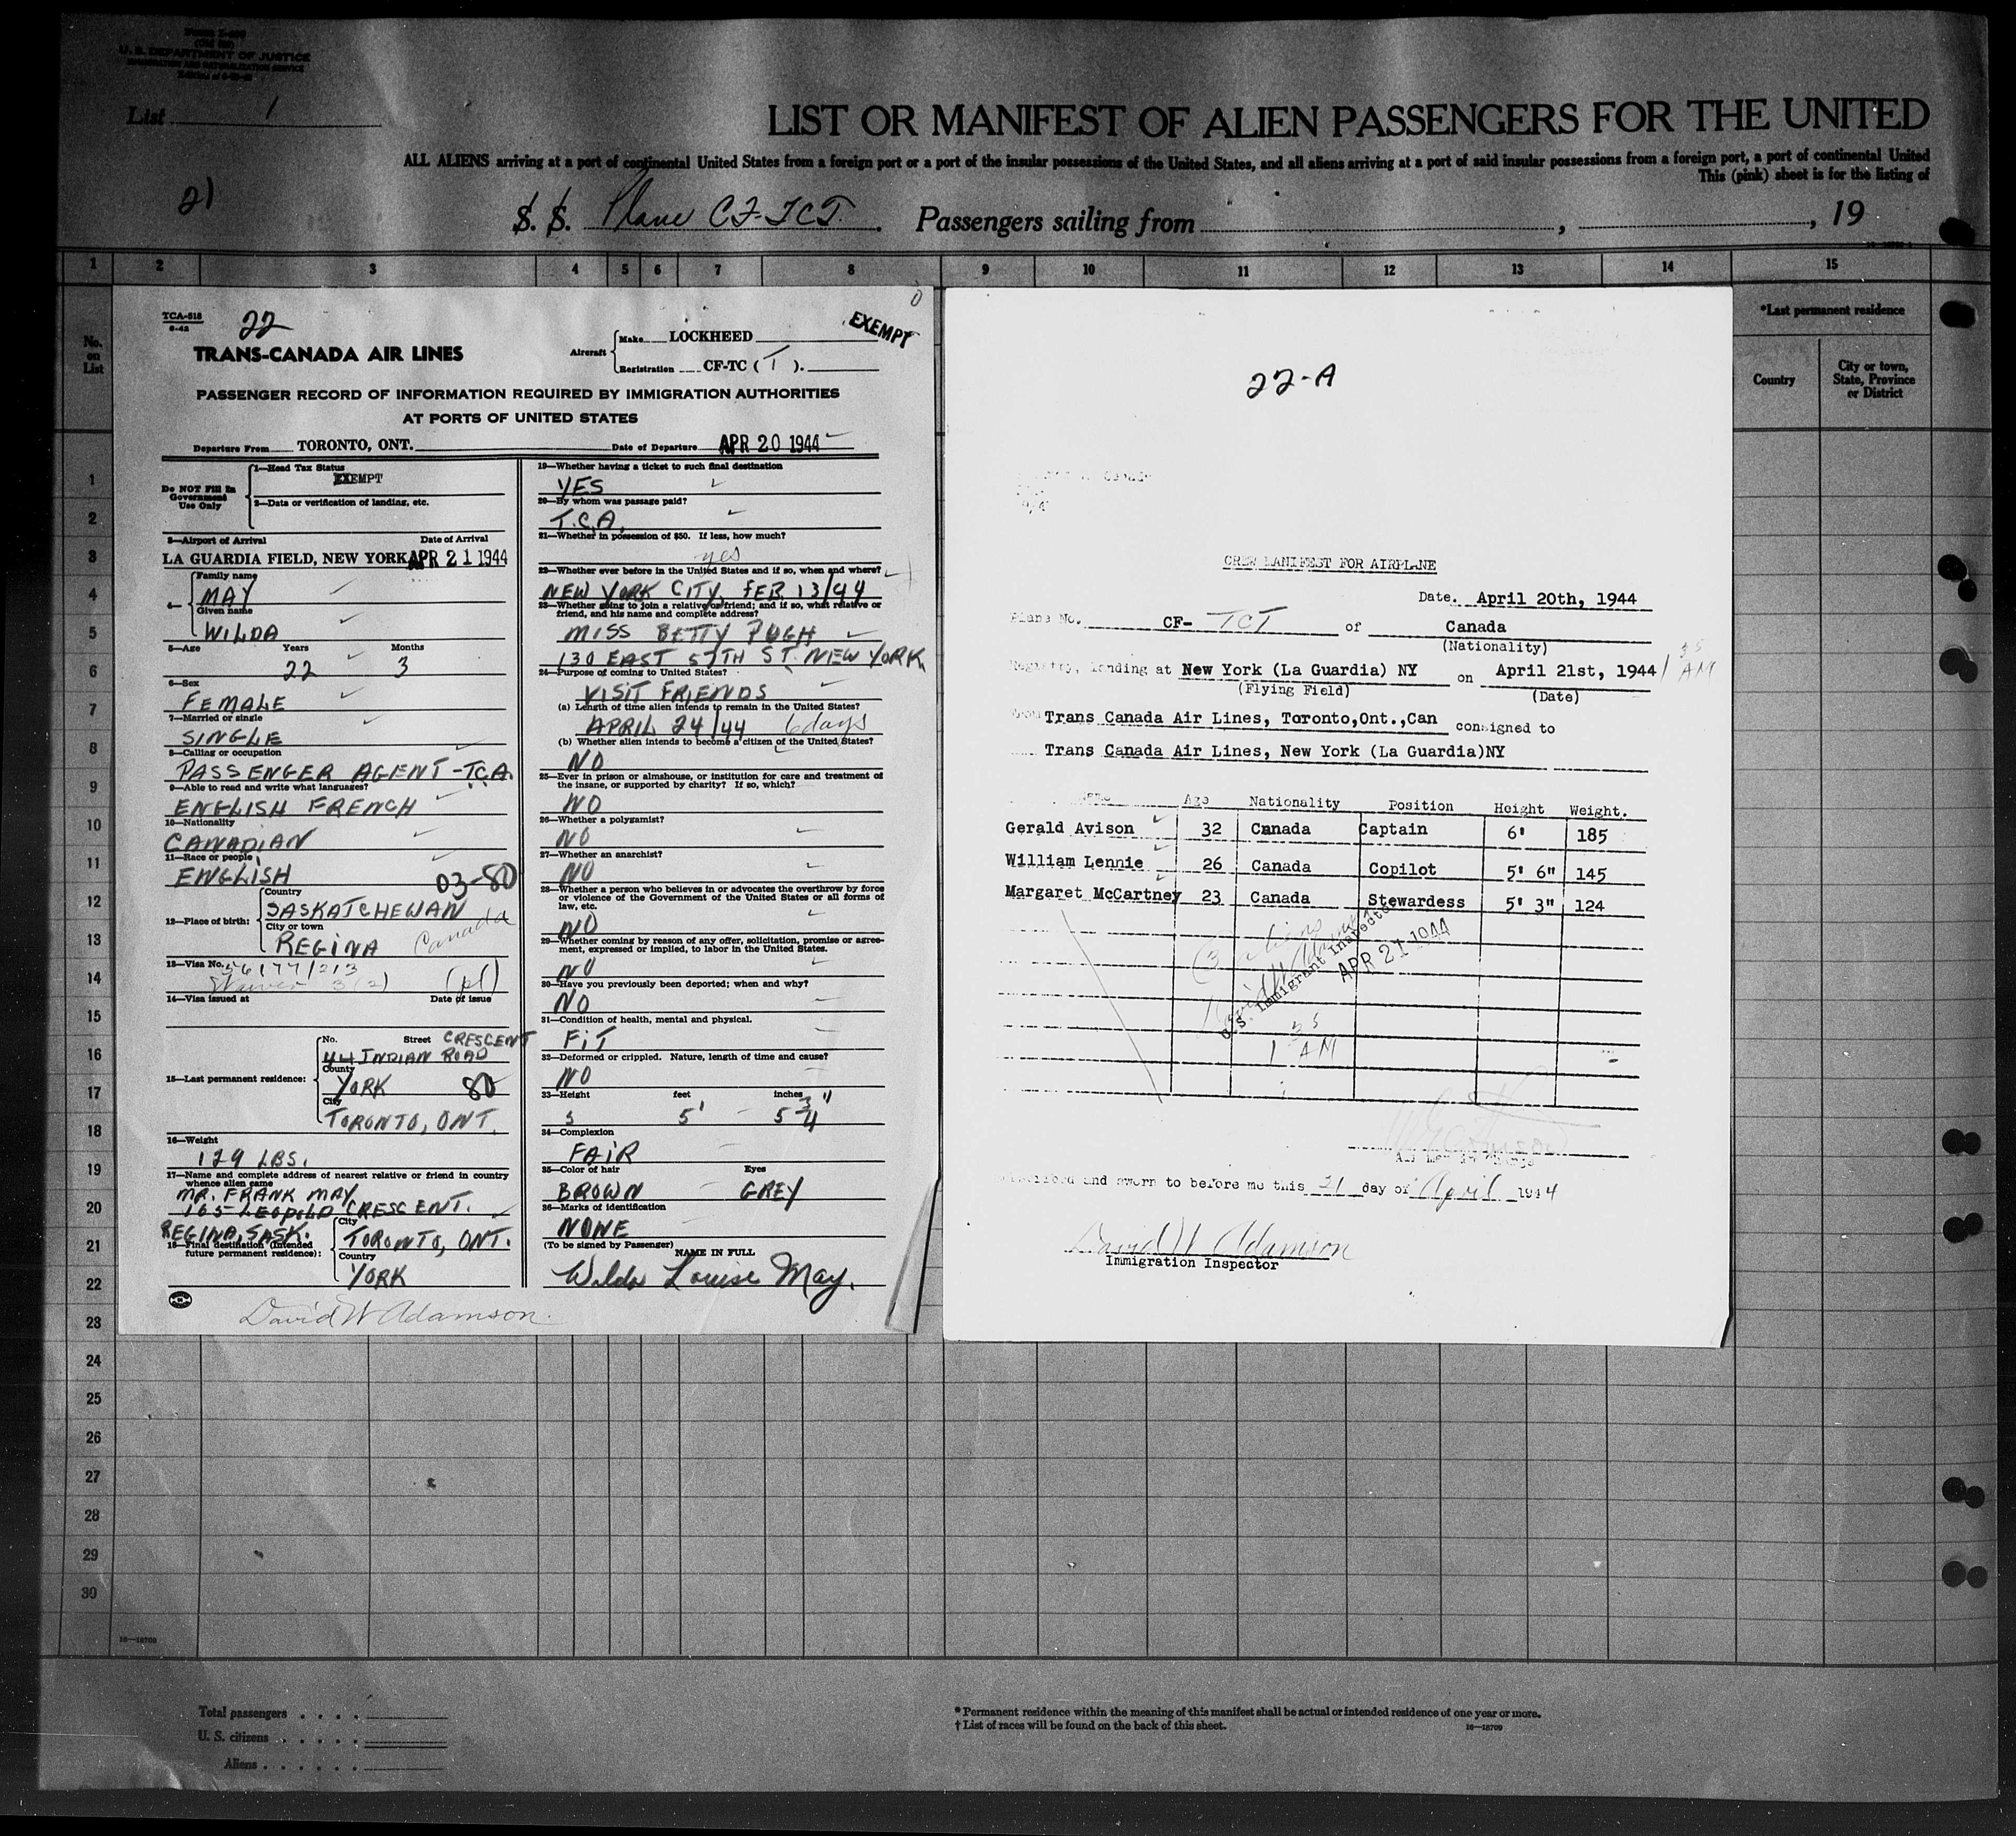 U. S. DEPARTMENT OF JUSTICE
IMMIGRATION AND NATURALIZATION SERVICE
List 1
LIST OR MANIFEST OF ALIEN PASSENGERS FOR THE UNITED
ALL ALIENS arriving at a port of continental United States from a foreign port or a port of the insular possessions of the United States, and all aliens arriving at a port of said insular possessions from a foreign port, a port of continental United
This (pink) sheet is for the listing of
21
S. S. Plane CF-TCT. Passengers sailing from , , 19
1 2 3 4 5 6 7 8 9 10 11 12 13 14 15
No. on List
*Last permanent residence
Country
City or town, State, Province or District
TCA-618
6-42
22
EXEMPT
TRANS-CANADA AIR LINES
Aircraft
Make LOCKHEED
Registration CF-TC ( T ).
PASSENGER RECORD OF INFORMATION REQUIRED BY IMMIGRATION AUTHORITIES
AT PORTS OF UNITED STATES
Departure From TORONTO, ONT. Date of Departure APR 20 1944
Do NOT Fill In Government Use Only
1—Head Tax Status
EXEMPT
2—Data or verification of landing, etc.
3—Airport of Arrival Date of Arrival
LA GUARDIA FIELD, NEW YORK APR 21 1944
4—
Family name
MAY
Given name
WILDA
5—Age Years Months
22 3
6—Sex
FEMALE
7—Married or single
SINGLE
8—Calling or occupation
PASSENGER AGENT - T.C.A.
9—Able to read and write what languages?
ENGLISH FRENCH
10—Nationality
CANADIAN
11—Race or people
ENGLISH 03-80
12—Place of birth:
Country
SASKATCHEWAN
City or town
REGINA Canada
13—Visa No.
(pl)
14—Visa issued at Date of issue
15—Last permanent residence:
No. Street CRESCENT
44 INDIAN ROAD
County
YORK 80
City
TORONTO, ONT.
16—Weight
129 LBS.
17—Name and complete address of nearest relative or friend in country
whence alien came
MR. FRANK MAY
165 LEOPOLD CRESCENT.
REGINA, SASK.
18—Final destination (Intended future permanent residence):
City
TORONTO, ONT.
Country
YORK
David W Adamson.
19—Whether having a ticket to such final destination
YES
20—By whom was passage paid?
T.C.A.
21—Whether in possession of $50. If less, how much?
yes
22—Whether ever before in the United States and if so, when and where?
NEW YORK CITY, FEB 13/44
23—Whether going to join a relative or friend; and if so, what relative or
friend, and his name and complete address?
MISS BETTY PUGH
130 EAST 57TH ST. NEW YORK.
24—Purpose of coming to United States?
VISIT FRIENDS
(a) Length of time alien intends to remain in the United States?
APRIL 24/44 6 days
(b) Whether alien intends to become a citizen of the United States?
NO
25—Ever in prison or almshouse, or institution for care and treatment of
the insane, or supported by charity? If so, which?
NO
26—Whether a polygamist?
NO
27—Whether an anarchist?
NO
28—Whether a person who believes in or advocates the overthrow by force
or violence of the Government of the United States or all forms of
law, etc.
NO
29—Whether coming by reason of any offer, solicitation, promise or agree-
ment, expressed or implied, to labor in the United States.
NO
30—Have you previously been deported; when and why?
NO
31—Condition of health, mental and physical.
FIT
32—Deformed or crippled. Nature, length of time and cause?
NO
33—Height feet inches
5' 5 3/4"
34—Complexion
FAIR
35—Color of hair Eyes
BROWN GREY
36—Marks of identification
NONE
(To be signed by Passenger) NAME IN FULL
Wilda Louise May.
22-A
CREW MANIFEST FOR AIRPLANE
Date. April 20th, 1944
Plane No. CF- TCT of Canada
(Nationality)
Registry, landing at New York (La Guardia) NY on April 21st, 1944 1 35 AM
(Flying Field) (Date)
Trans Canada Air Lines, Toronto,Ont.,Can consigned to
Trans Canada Air Lines, New York (La Guardia)NY
Age Nationality Position Height Weight.
Gerald Avison 32 Canada Captain 6' 185
William Lennie 26 Canada Copilot 5' 6" 145
Margaret McCartney 23 Canada Stewardess 5' 3" 124
(3 aliens
U.S. Immigrant Inspector
APR 21 1944
1 35 AM
and sworn to before me this 21 day of April 1944
David W Adamson
Immigration Inspector
1
2
3
4
5
6
7
8
9
10
11
12
13
14
15
16
17
18
19
20
21
22
23
24
25
26
27
28
29
30
16—18709
Total passengers
U. S. citizens
Aliens
* Permanent residence within the meaning of this manifest shall be actual or intended residence of one year or more.
† List of races will be found on the back of this sheet.
16—18709